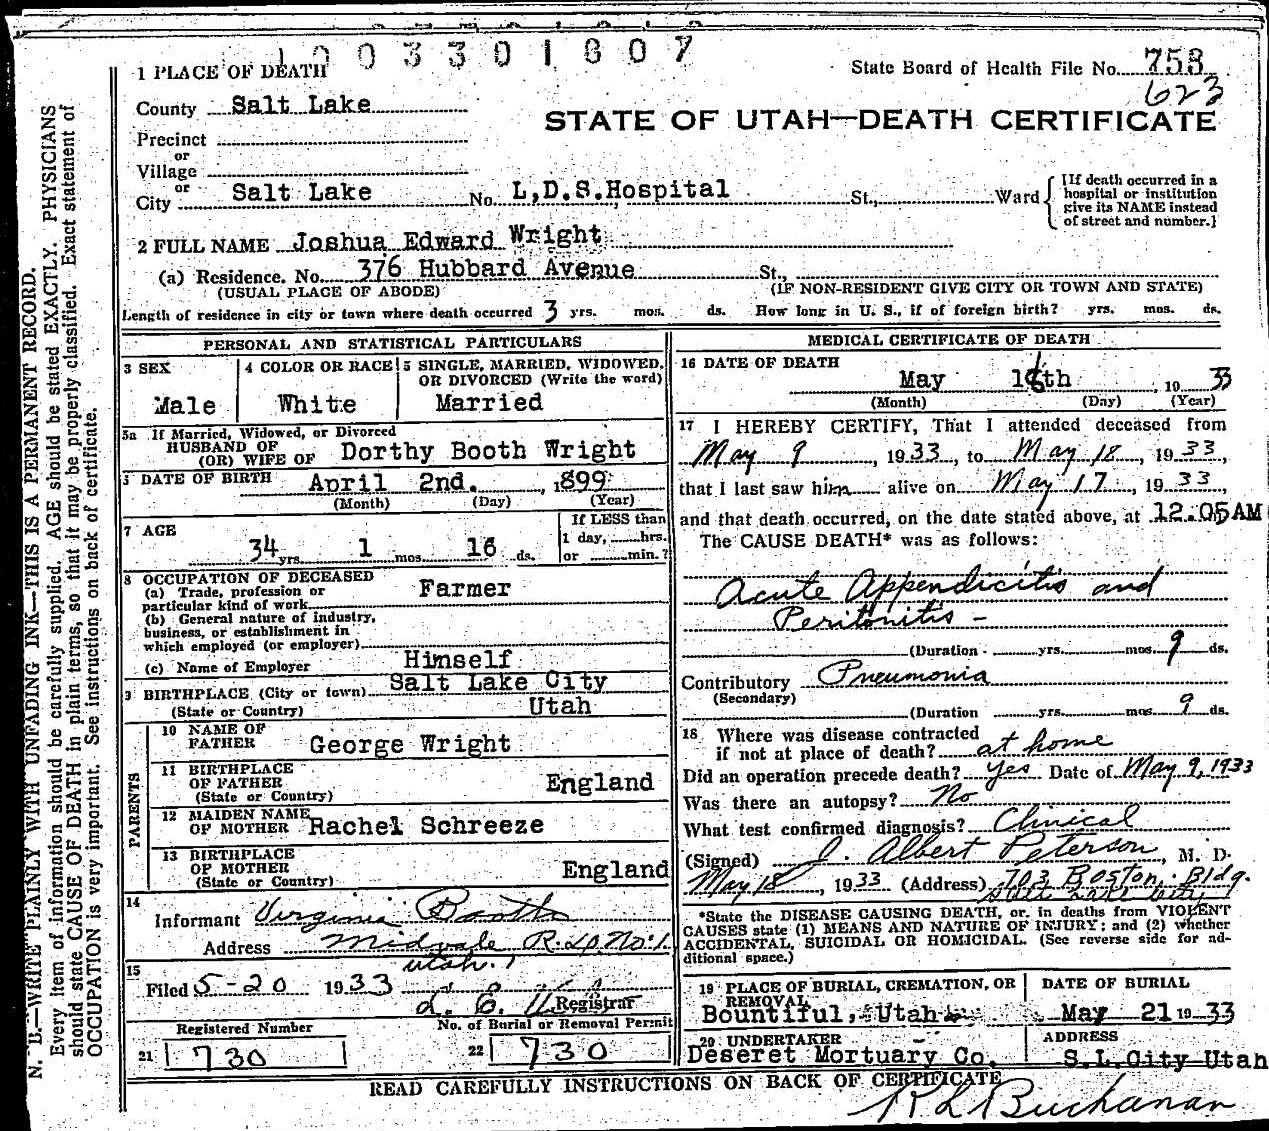 1003301807
1 PLACE OF DEATH
State Board of Health File No. 758
623
County Salt Lake
STATE OF UTAH—DEATH CERTIFICATE
Precinct
or
Village
or
City Salt Lake No. L,D.S.Hospital St., Ward
{If death occurred in a
hospital or institution
give its NAME instead
of street and number.}
2 FULL NAME Joshua Edward Wright
(a) Residence. No. 376 Hubbard Avenue St.,
(USUAL PLACE OF ABODE) (IF NON-RESIDENT GIVE CITY OR TOWN AND STATE)
Length of residence in city or town where death occurred 3 yrs. mos. ds. How long in U. S., if of foreign birth? yrs. mos. ds.
PERSONAL AND STATISTICAL PARTICULARS
3 SEX
Male
4 COLOR OR RACE
White
5 SINGLE, MARRIED, WIDOWED,
OR DIVORCED (Write the word)
Married
5a If Married, Widowed, or Divorced
HUSBAND OF
(OR) WIFE OF Dorthy Booth Wright
DATE OF BIRTH April 2nd. , 1899
(Month) (Day) (Year)
7 AGE
34 yrs. 1 mos. 16 ds.
If LESS than
1 day, hrs.
or min.?
8 OCCUPATION OF DECEASED
(a) Trade, profession or
particular kind of work Farmer
(b) General nature of industry,
business, or establishment in
which employed (or employer)
(c) Name of Employer Himself
9 BIRTHPLACE (City or town) Salt Lake City
(State or Country) Utah
PARENTS
10 NAME OF
FATHER George Wright
11 BIRTHPLACE
OF FATHER
(State or Country) England
12 MAIDEN NAME
OF MOTHER Rachel Schreeze
13 BIRTHPLACE
OF MOTHER
(State or Country) England
14
Informant Virginia Booth
Address Midvale R.F.D. No. 1.
Utah.
15
Filed 5-20 1933
Registrar
Registered Number
21 730
No. of Burial or Removal Permit
22 730
MEDICAL CERTIFICATE OF DEATH
16 DATE OF DEATH
May 18th , 19 33
(Month) (Day) (Year)
17 I HEREBY CERTIFY, That I attended deceased from
May 9, 1933, to May 18, 1933,
that I last saw him alive on May 17, 1933,
and that death occurred, on the date stated above, at 12.05 AM
The CAUSE DEATH* was as follows:
Acute Appendicitis and
Peritonitis -
(Duration - yrs. mos. 9 ds.
Contributory Pneumonia
(Secondary)
(Duration yrs. mos. 9 ds.
18 Where was disease contracted
if not at place of death? at home
Did an operation precede death? Yes Date of May 9, 1933
Was there an autopsy? No
What test confirmed diagnosis? Clinical
(Signed) J. Albert Peterson, M. D.
May 18, 1933 (Address) 703 Boston Bldg.
Salt Lake City
*State the DISEASE CAUSING DEATH, or, in deaths from VIOLENT
CAUSES state (1) MEANS AND NATURE OF INJURY; and (2) whether
ACCIDENTAL, SUICIDAL OR HOMICIDAL. (See reverse side for ad-
ditional space.)
19 PLACE OF BURIAL, CREMATION, OR
REMOVAL
Bountiful, Utah
DATE OF BURIAL
May 21 19 33
20 UNDERTAKER
Deseret Mortuary Co.
ADDRESS
S.L.City Utah
READ CAREFULLY INSTRUCTIONS ON BACK OF CERTIFICATE
R L Buchanan
N. B.—WRITE PLAINLY WITH UNFADING INK—THIS IS A PERMANENT RECORD.
Every item of information should be carefully supplied. AGE should be stated EXACTLY. PHYSICIANS
should state CAUSE OF DEATH in plain terms, so that it may be properly classified. Exact statement of
OCCUPATION is very important. See instructions on back of certificate.